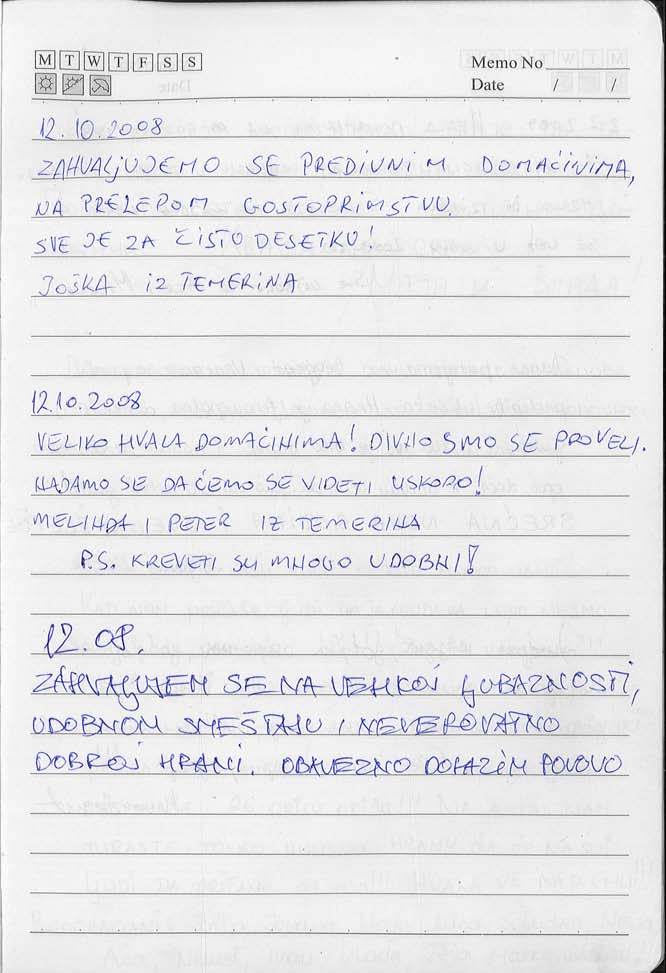 M T W T F S S
Memo No
Date / /
12.10.2008
ZAHVALJUJEMO SE PREDIVNIM DOMAĆINIMA,
NA PRELEPOM GOSTOPRIMSTVU
SVE JE ZA ČISTU DESETKU!
JOŠKA IZ TEMERINA
12.10.2008
VELIKO HVALA DOMAĆINIMA! DIVNO SMO SE PROVELI.
NADAMO SE DA ĆEMO SE VIDETI USKORO!
MELINDA I PETER IZ TEMERINA
P.S. KREVETI SU MNOGO UDOBNI!
12.08.
ZAHVALJUJEM SE NA VELIKOJ LJUBAZNOSTI,
UDOBNOM SMEŠTAJU I NEVEROVATNO
DOBROJ HRANI. OBAVEZNO DOLAZIM PONOVO